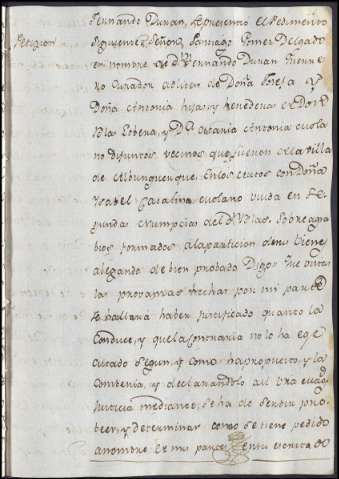 Fernando Duran, se presento el Pedimento
Peticion
siguiente= Señor, Santiago Gomez Delgado
en nombre de dn Fernando Duran
no Curador adlitem de Doña Theresa y
Doña Antonia hijas y herederas de Don
Blas, y Da Antonia
no difuntos vecinos que fueron de la villa
de Alburquerque; En los autos con Doña
Ysabel Catalina viuda en se
gundas Nunpcias del dn Blas; Sobre agra
bios formados a la particion de sus bienes
alegando de bien probado Digo: Que vistas
las provanzas hechas por mi parte
se hallara haber justificado quanto la
Conduce, y que la contraria no lo ha ege
cutado segun, y como ha propuesto, y la
Combenia, y declarandolo asi Vra
Justicia mediante, se ha de servir pro
beer, y determinar como se tiene pedido
a nombre de mi parte en su escrito de